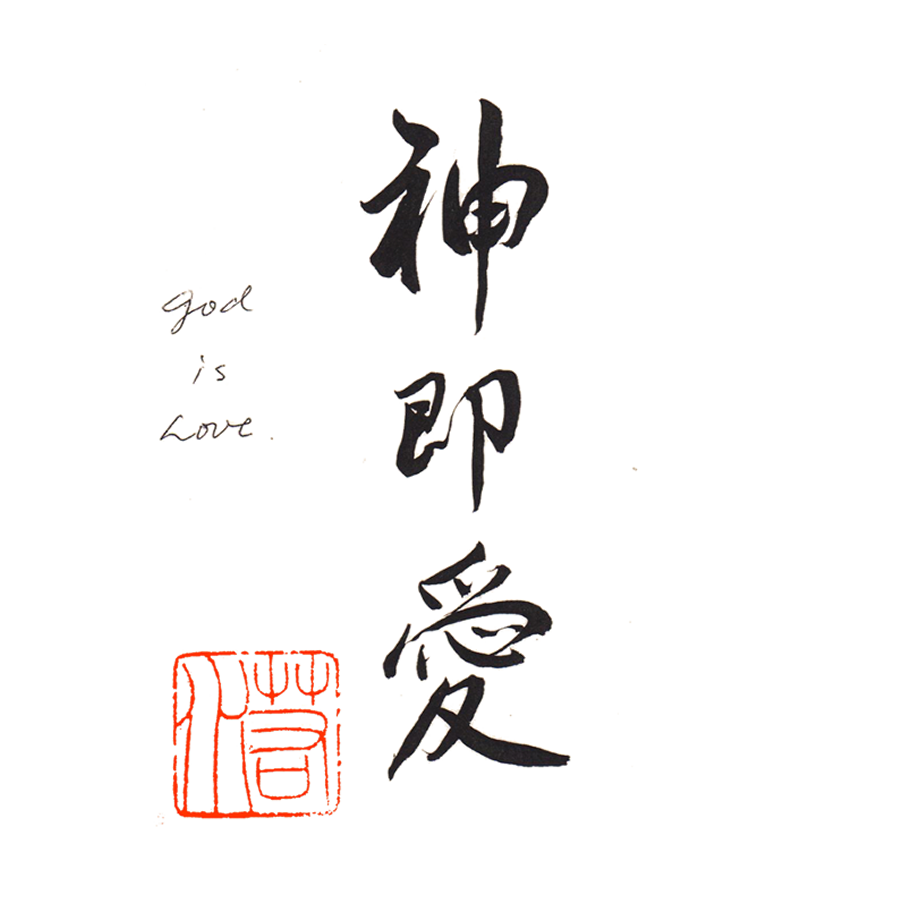 神即愛
god
is
Love.